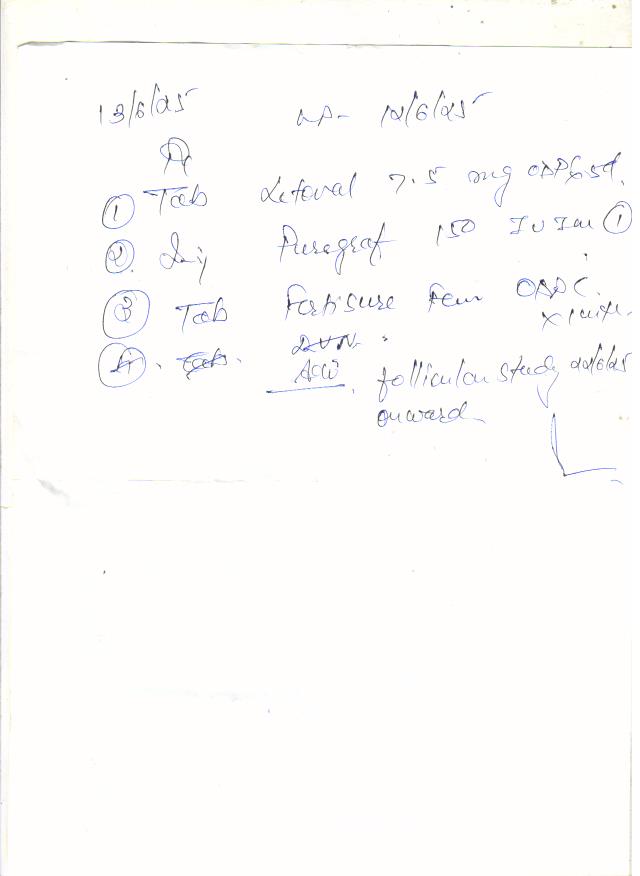 13/6/25 LP- 12/6/25
Rx
① Tab Letoval 7.5 mg ODPC x 5d.
②. Inj Puregraf 150 IU IM ①
③ Tab Fertisure Fem ODPC.
x 1
④. Tab.
Adv. follicular study 22/6/25
onward